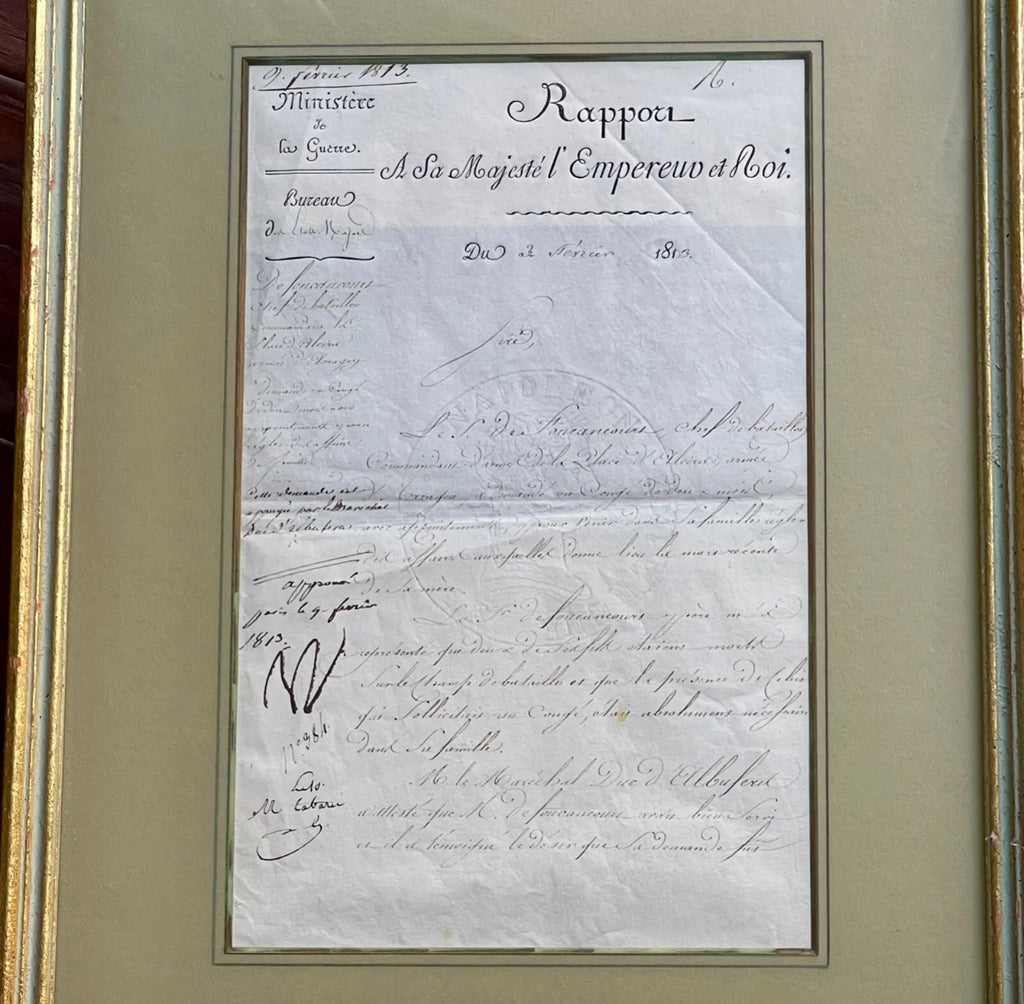 9. février 1813.
Ministère
de
la Guerre.
Bureau
des
Rapport
A Sa Majesté l'Empereur et Roi.
Du 3 Février 1813.
Sire,
De foucaucourt
chef de bataillon
Commandant la
Place d'
armée d'
demande un Congé
de deux mois avec
appointements pour
régler des affaires
de famille.
cette demande est
appuyée par le Maréchal
Duc d'albufera
approuvé
paris le 9 février
1813.
N
nº 981.
M
Le Sr. de Foucaucourt, chef de bataillon
Commandant d'armes de la Place d' armée
d' a demandé un Congé de deux mois,
avec appointements, pour venir dans Sa famille régler
des affaires auxquelles donne lieu la mort récente
de Sa mère.
Le Sr. de foucaucourt père m'a
représenté que deux de Ses fils étaient morts
Sur le Champ de bataille et que la présence de Celui
qui Sollicitait un Congé, était absolument nécessaire
dans Sa famille.
M. le Maréchal Duc d'Albufera
a attesté que M. de foucaucourt avait bien Servi
et il a témoigné le désir que Sa demande fût